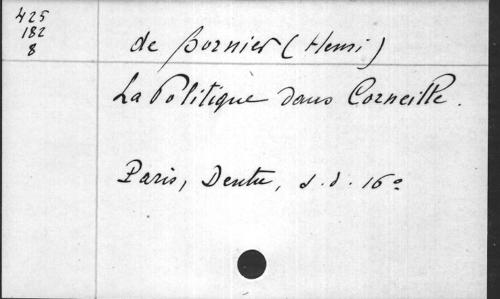 425
182
8
de Bornier (Henri)
La Politique dans Corneille.
Paris, Dentu, s.d. 16º